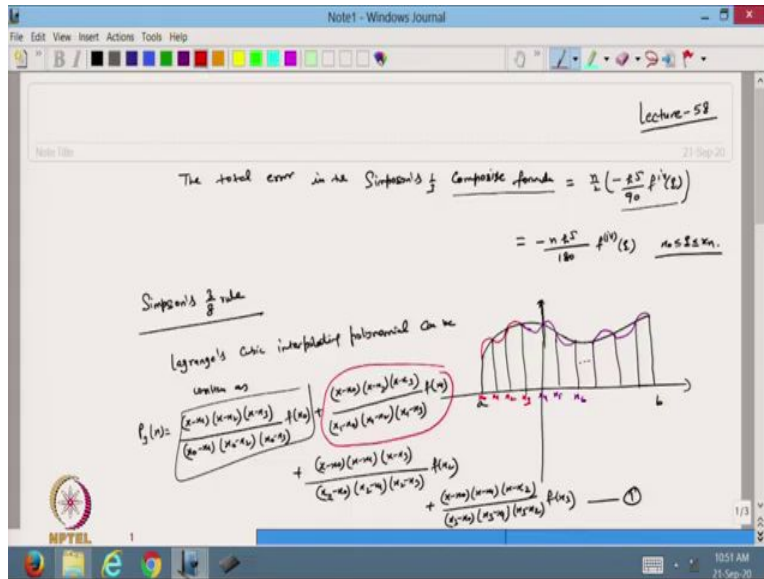 Note1 - Windows Journal
File Edit View Insert Actions Tools Help
B I
Lecture-58
Note Title
21-Sep-20
The total error in the Simpson's 1/3 Composite formula = n/2 (-h^5/90 f^iv(ξ))
= -n h^5/180 f^(iv)(ξ) x0 ≤ ξ ≤ xn.
Simpson's 3/8 rule
Lagrange's Cubic interpolating polynomial can be
written as
P3(x) = (x-x1)(x-x2)(x-x3)/(x0-x1)(x0-x2)(x0-x3) f(x0) + (x-x0)(x-x2)(x-x3)/(x1-x0)(x1-x2)(x1-x3) f(x1)
+ (x-x0)(x-x1)(x-x3)/(x2-x0)(x2-x1)(x2-x3) f(x2)
+ (x-x0)(x-x1)(x-x2)/(x3-x0)(x3-x1)(x3-x2) f(x3) — 1
...
a x1 x2 x3 x4 x5 x6 b
NPTEL
1
1/3
10:51 AM
21-Sep-20